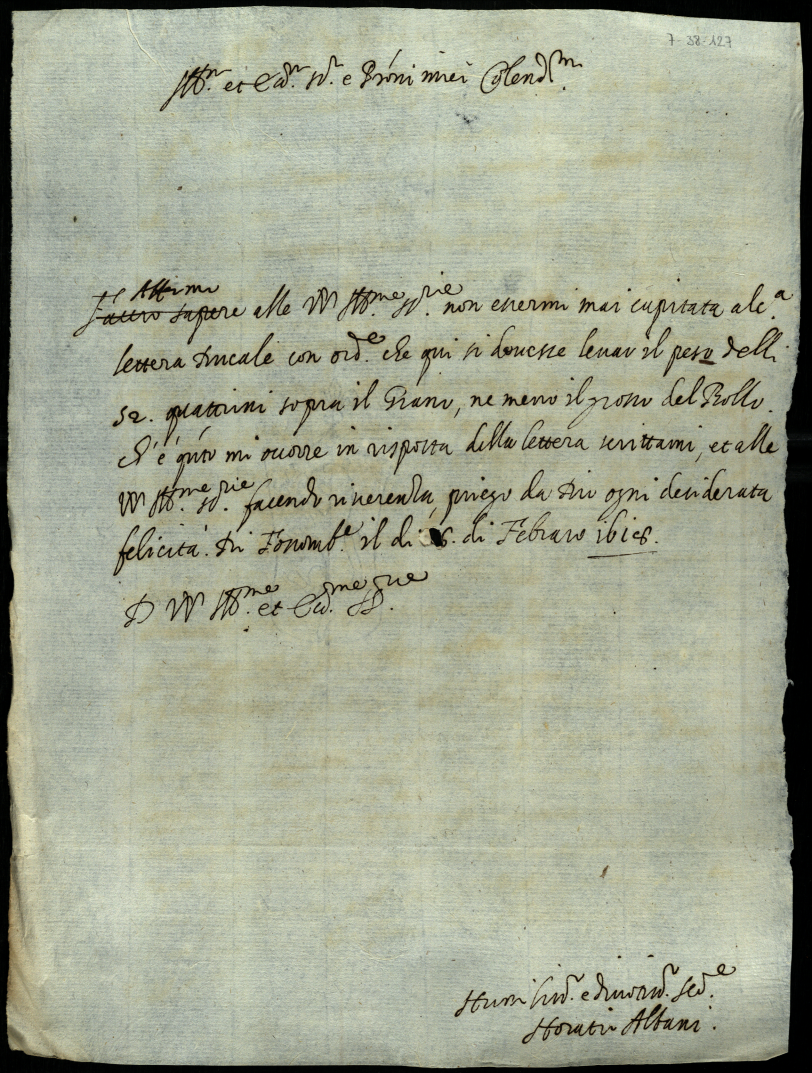 7-38-127
Ill.mi et Ecc.mi SS.ri e Pròni miei Colend.mi
Attimo
Faccio sapere alle VV Ill.me SS.rie non essermi mai capitata alc.a
lettera Ducale con ord.e che qui si dovesse levar il peso delli
52. quattrini sopra il Grano, ne meno il grosso del Bollo.
ch'è q.to mi occorre in risposta della lettera scrittami, et alle
VV Ill.me SS.rie facendo riverenza, priego da Dio ogni desiderata
felicità. Di Fossomb.e il di 6. di Febraro 1618.
D VV Ill.me et Ecc.me SS.rie
Humiliss.o e divotiss.o Se.re
Horatio Albani.